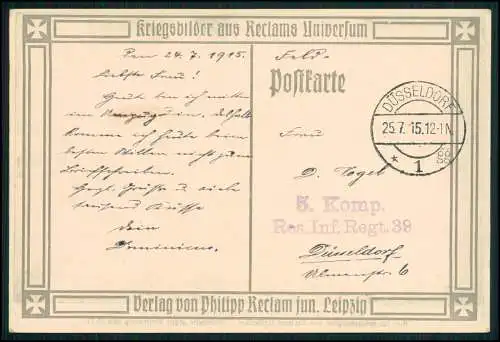 Kriegsbilder aus Reclams Universum
Den 24.7.1915.
Liebste Frau!
Heute bin ich mitten
im Umzug, deshalb
komme ich heute beim
besten Willen nicht zum
Briefschreiben.
Herzl. Grüße u. viele
tausend Küsse
Dein
Dominicus.
Feld-
Postkarte
DÜSSELDORF
25.7.15.12-1N.
* 1
Frau
D. Vogel
5. Komp.
Res. Inf. Regt. 39
Düsseldorf
Ulmenstr. 6
Verlag von Philipp Reclam jun. Leipzig